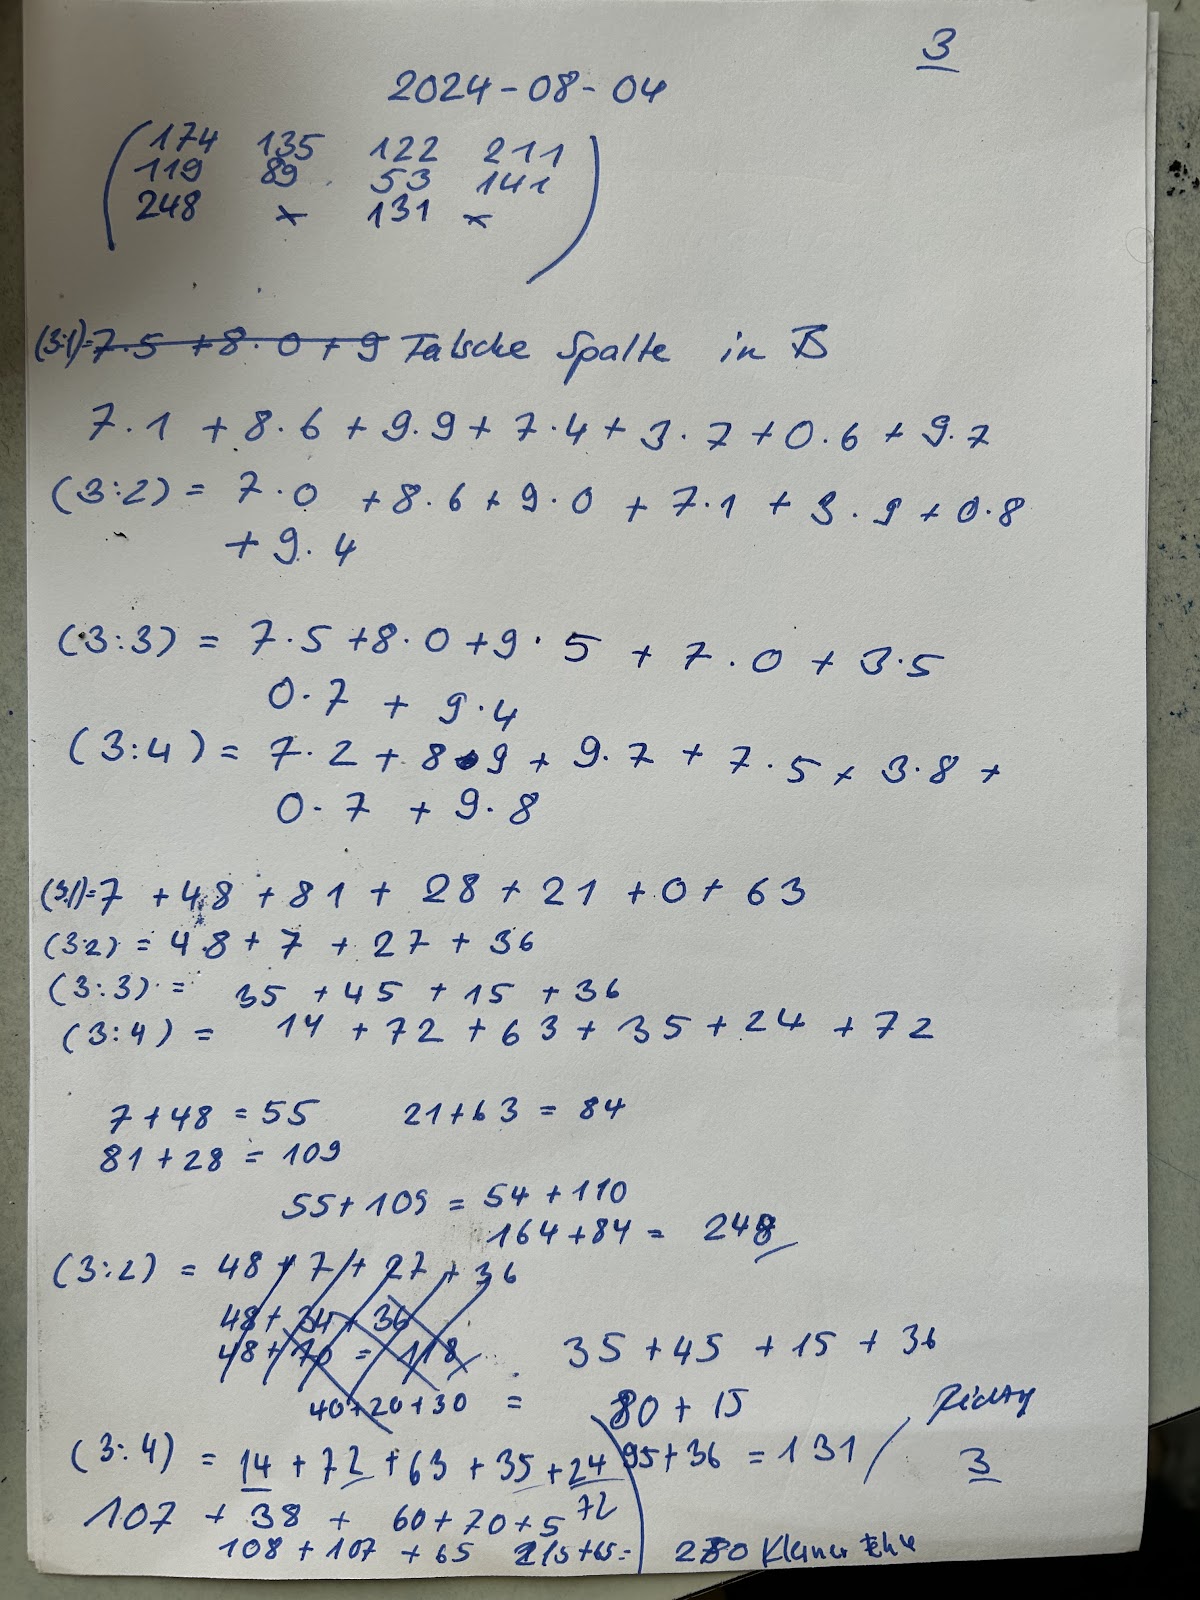 3
2024-08-04
174 135 122 211
119 89 53 141
248 x 131 x
(3:1)= 7·5 +8·0 + 9 Falsche Spalte in B
7·1 + 8·6 + 9·9 + 7·4 + 3·7 + 0·6 + 9·7
(3:2) = 7·0 + 8·6 + 9·0 + 7·1 + 3·9 + 0·8
+ 9·4
(3:3) = 7·5 + 8·0 + 9·5 + 7·0 + 3·5
0·7 + 9·4
(3:4) = 7·2 + 8·9 + 9·7 + 7·5 + 3·8 +
0·7 + 9·8
(3:1)= 7 + 48 + 81 + 28 + 21 + 0 + 63
(3:2) = 48 + 7 + 27 + 36
(3:3) = 35 + 45 + 15 + 36
(3:4) = 14 + 72 + 63 + 35 + 24 + 72
7 + 48 = 55 21 + 63 = 84
81 + 28 = 109
55 + 109 = 54 + 110
164 + 84 = 248
(3:2) = 48 + 7 + 27 + 36
48 + 34 + 36
48 + 70 = 118
35 + 45 + 15 + 36
40 + 20 + 30 = 80 + 15
95 + 36 = 131
3
(3:4) = 14 + 72 + 63 + 35 + 24
72
107 + 38 + 60 + 70 + 5
108 + 107 + 65 215 + 65 = 280 kleiner